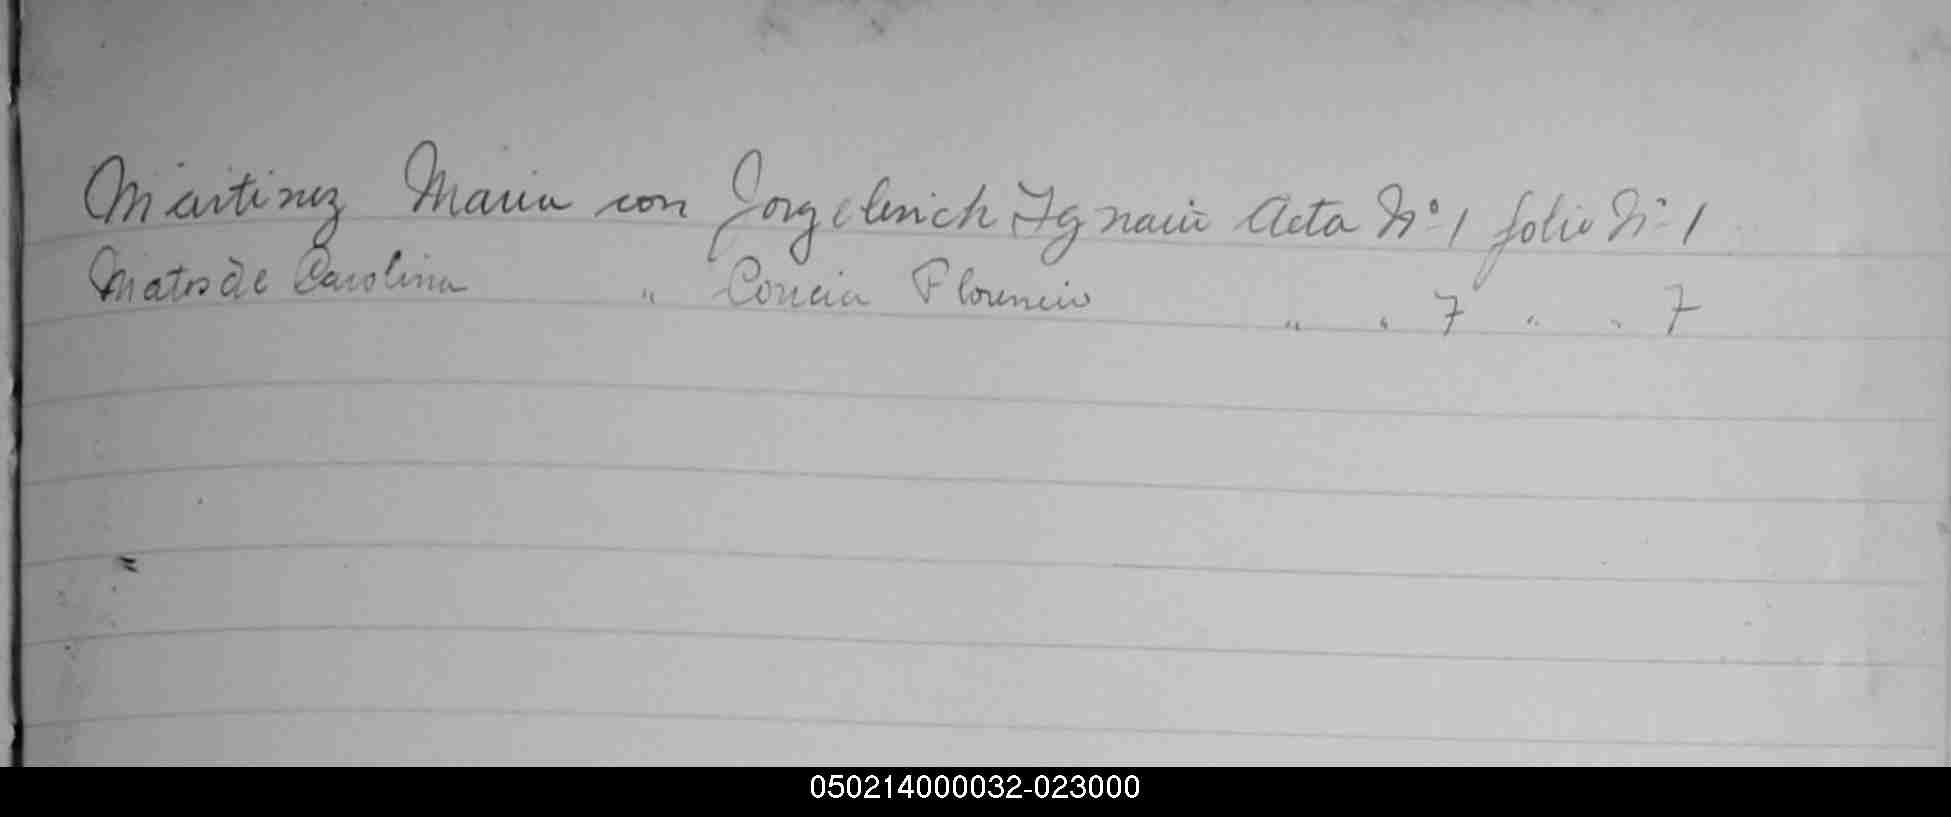 Martinez Maria con Jorgelerich Ignacio Acta Nº 1 folio Nº 1
Matos de Carolina " Correia Florencio " " 7 " " 7
050214000032-023000